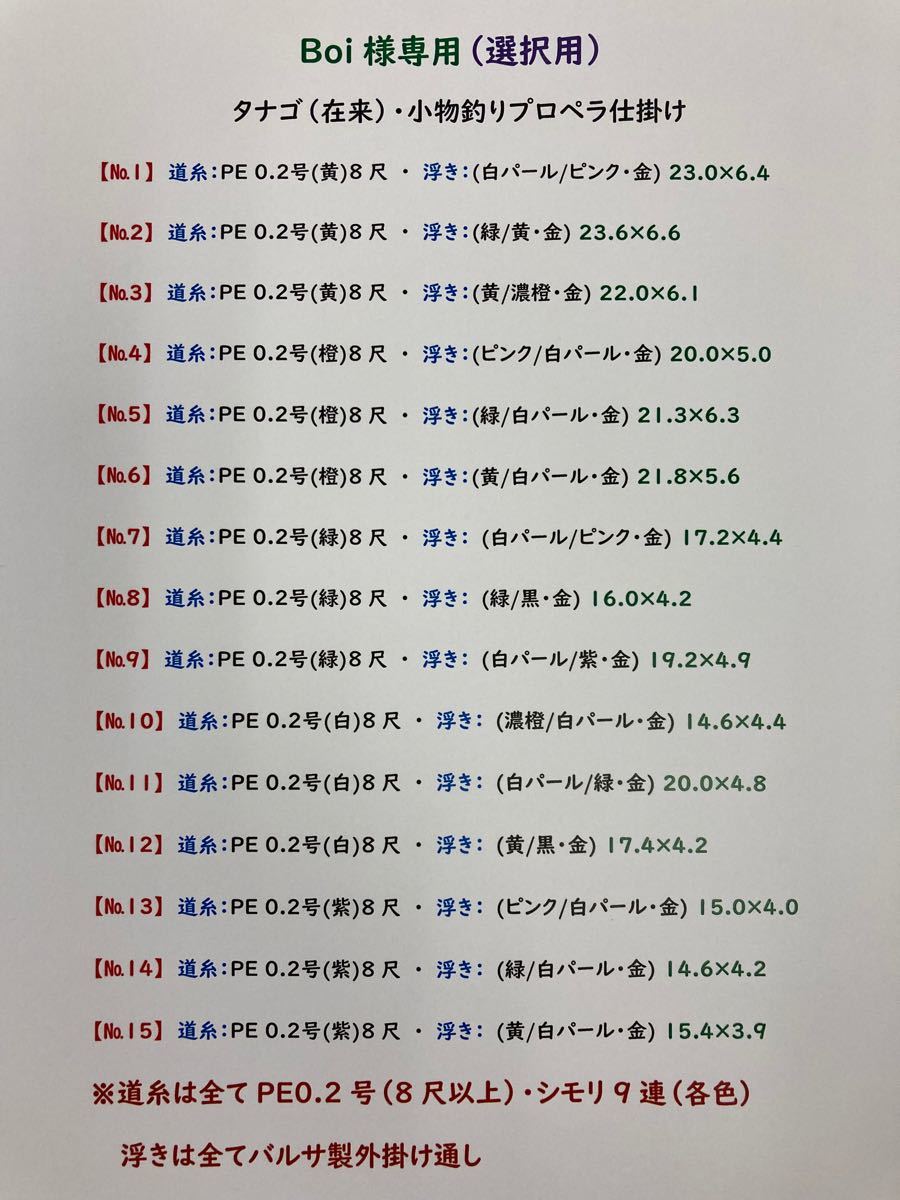 Boi様専用(選択用)
タナゴ(在来)・小物釣りプロペラ仕掛け
【№1】 道糸：PE 0.2号(黄)8尺 ・ 浮き：(白パール/ピンク・金) 23.0×6.4
【№2】 道糸：PE 0.2号(黄)8尺 ・ 浮き：(緑/黄・金) 23.6×6.6
【№3】 道糸：PE 0.2号(黄)8尺 ・ 浮き：(黄/濃橙・金) 22.0×6.1
【№4】 道糸：PE 0.2号(橙)8尺 ・ 浮き：(ピンク/白パール・金) 20.0×5.0
【№5】 道糸：PE 0.2号(橙)8尺 ・ 浮き：(緑/白パール・金) 21.3×6.3
【№6】 道糸：PE 0.2号(橙)8尺 ・ 浮き：(黄/白パール・金) 21.8×5.6
【№7】 道糸：PE 0.2号(緑)8尺 ・ 浮き： (白パール/ピンク・金) 17.2×4.4
【№8】 道糸：PE 0.2号(緑)8尺 ・ 浮き： (緑/黒・金) 16.0×4.2
【№9】 道糸：PE 0.2号(緑)8尺 ・ 浮き： (白パール/紫・金) 19.2×4.9
【№10】 道糸：PE 0.2号(白)8尺 ・ 浮き： (濃橙/白パール・金) 14.6×4.4
【№11】 道糸：PE 0.2号(白)8尺 ・ 浮き： (白パール/緑・金) 20.0×4.8
【№12】 道糸：PE 0.2号(白)8尺 ・ 浮き： (黄/黒・金) 17.4×4.2
【№13】 道糸：PE 0.2号(紫)8尺 ・ 浮き： (ピンク/白パール・金) 15.0×4.0
【№14】 道糸：PE 0.2号(紫)8尺 ・ 浮き： (緑/白パール・金) 14.6×4.2
【№15】 道糸：PE 0.2号(紫)8尺 ・ 浮き： (黄/白パール・金) 15.4×3.9
※道糸は全てPE0.2号(8尺以上)・シモリ9連(各色)
浮きは全てバルサ製外掛け通し